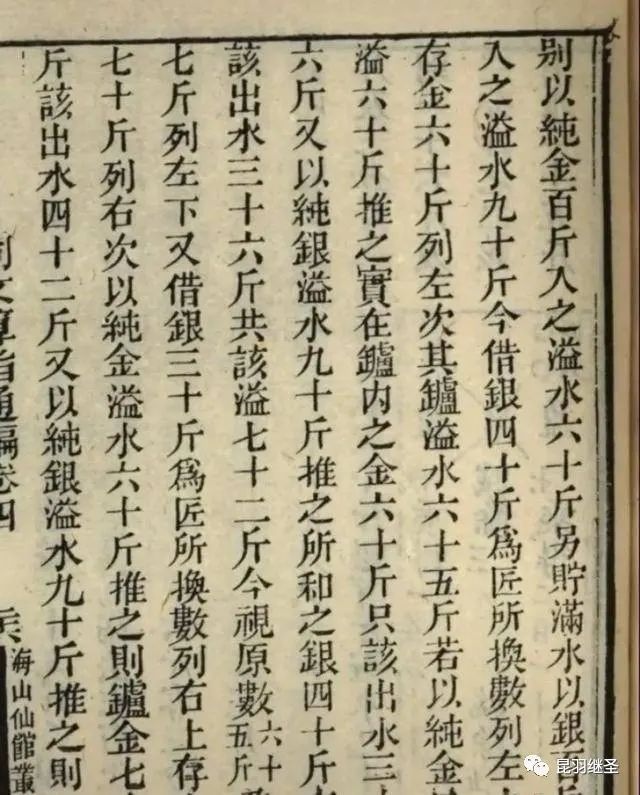 别以純金百斤入之溢水六十斤另貯滿水以銀百斤
入之溢水九十斤今借銀四十斤爲匠所換數列左
存金六十斤列左次其鑪溢水六十五斤若以純金
溢六十斤推之實在鑪内之金六十斤只該出水三
六斤又以純銀溢水九十斤推之所和之銀四十斤
該出水三十六斤共該溢七十二斤今視原數六十五斤
七斤列左下又借銀三十斤爲匠所換數列右上存
七十斤列右次以純金溢水六十斤推之則鑪金七
斤該出水四十二斤又以純銀溢水九十斤推之則
同文算指通編卷四
海山仙館叢
昆羽继圣